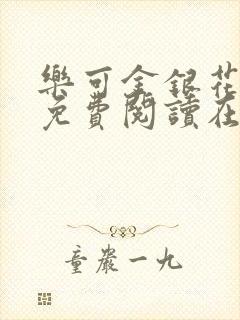 樂可金銀花
免費閱讀在
童嚴一九